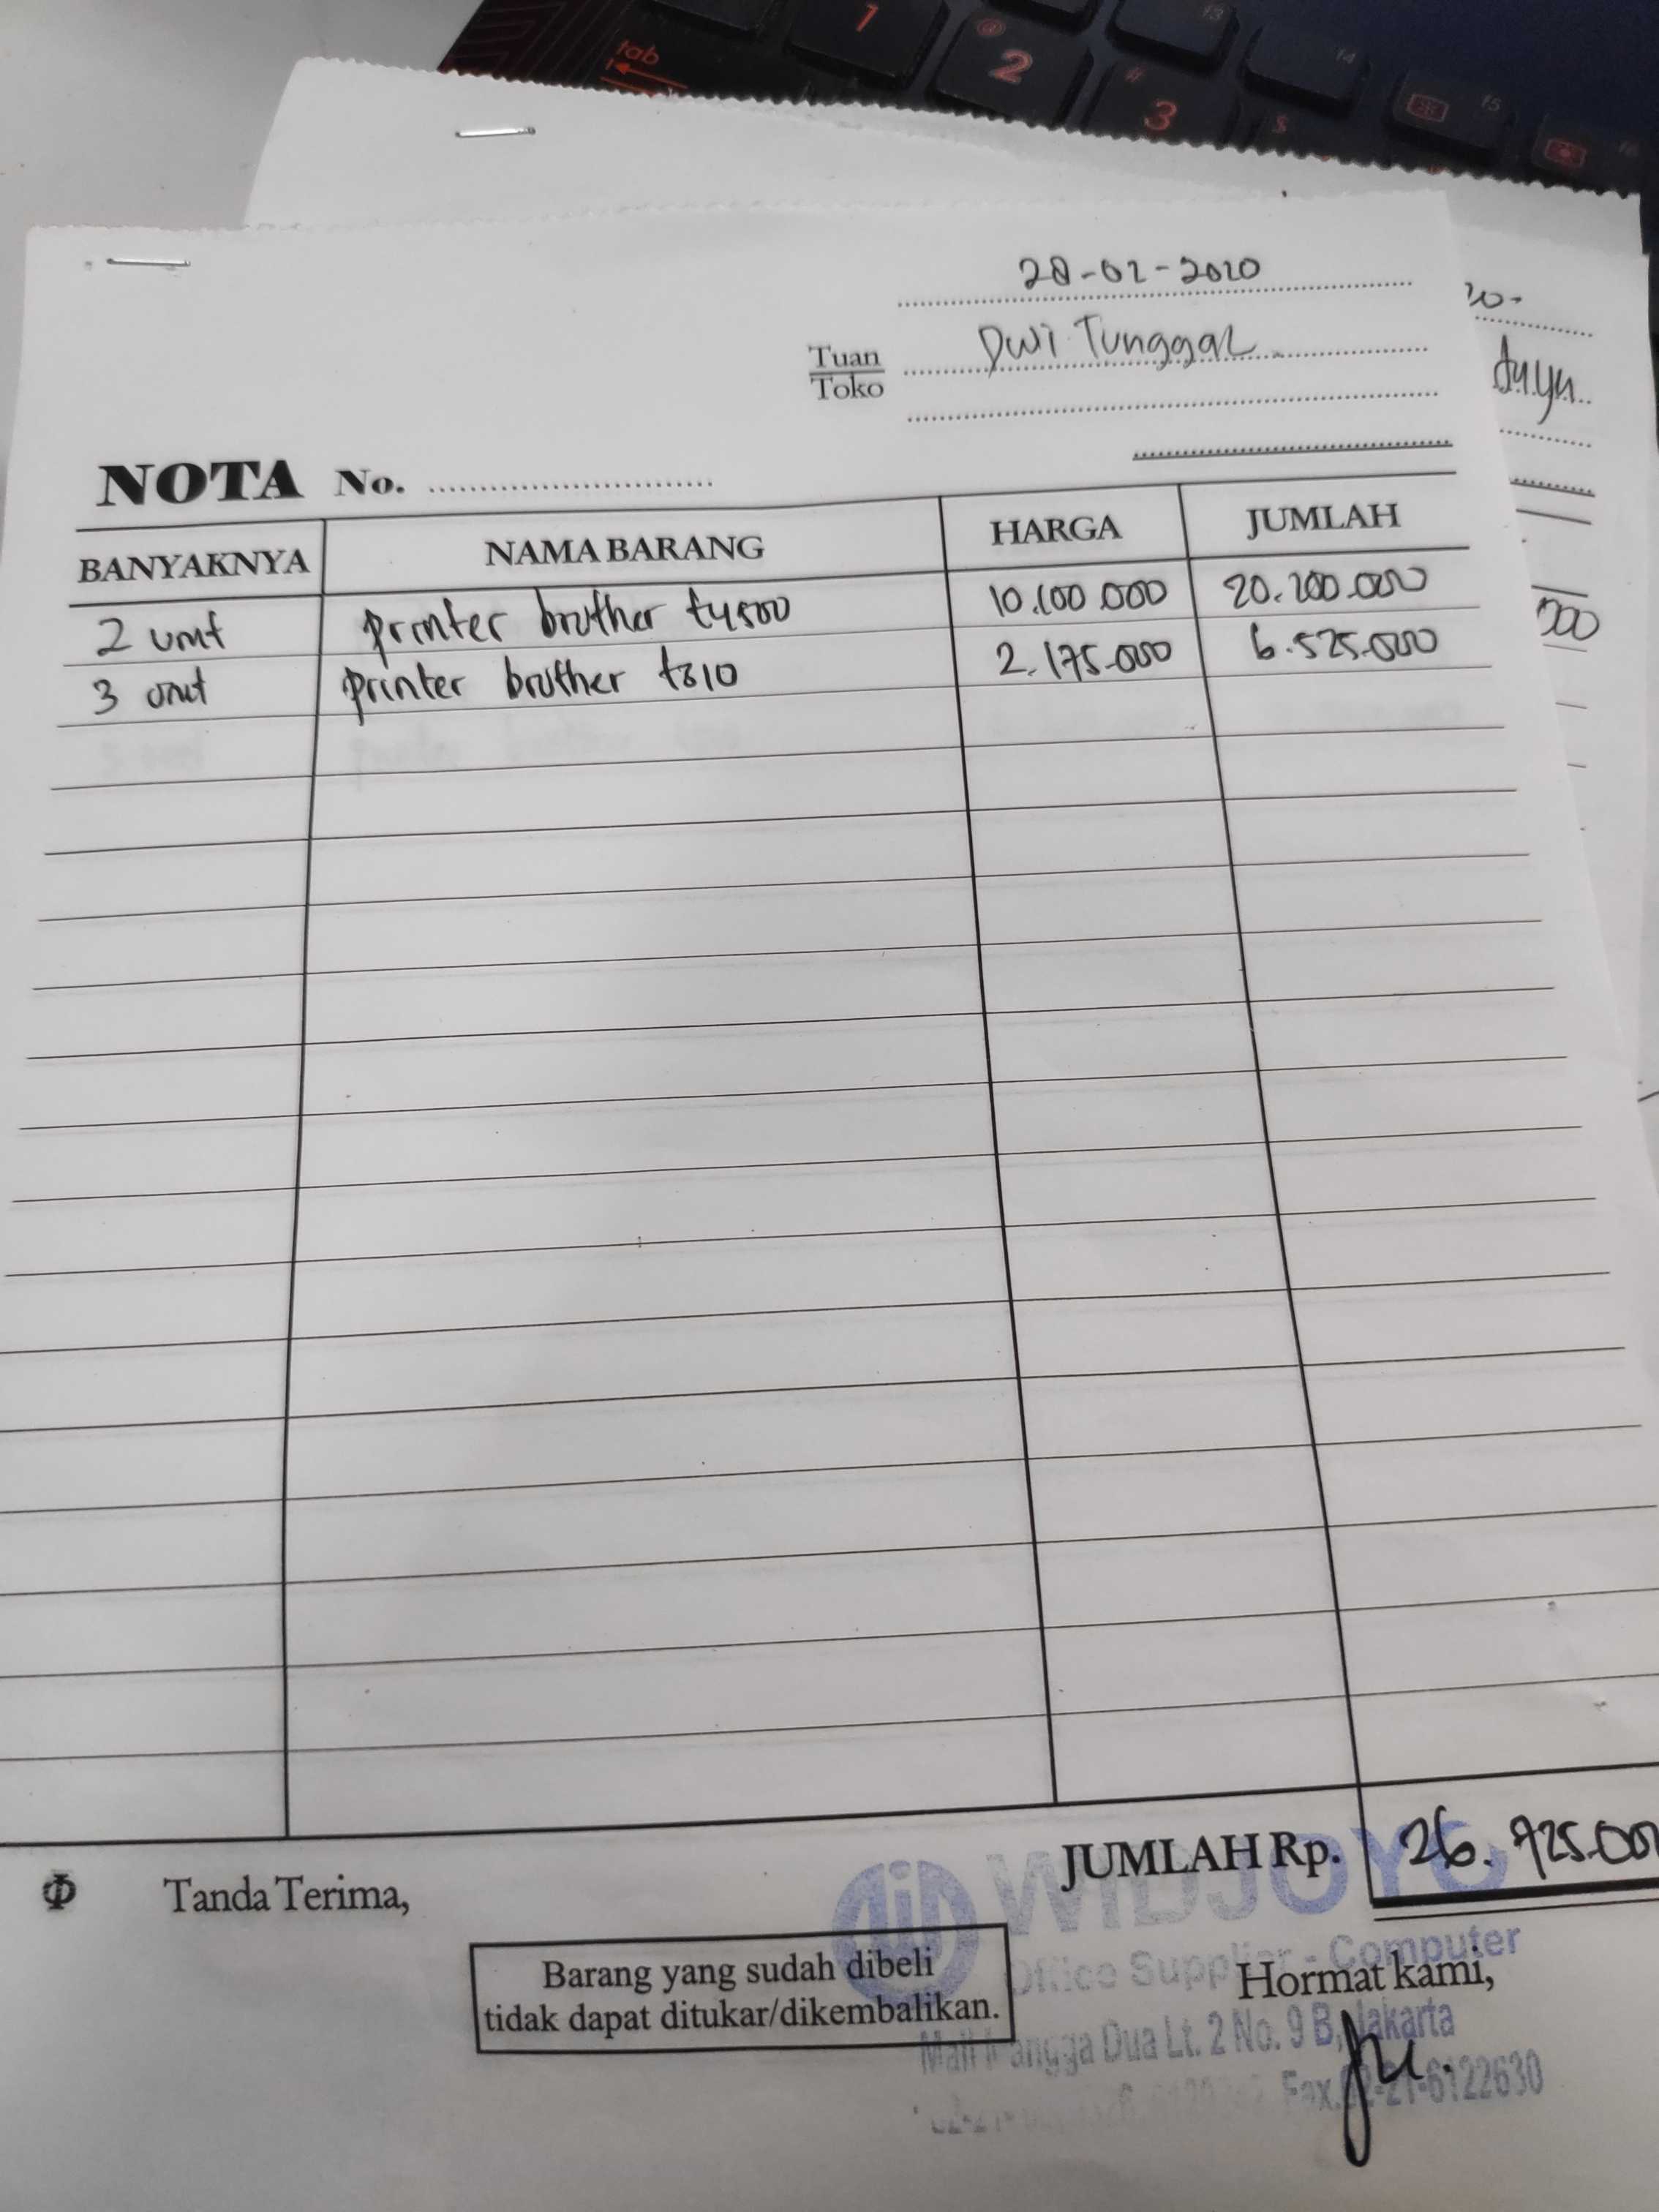 tab
1
@
2
#
3
$
f3
f4
f5
f6
28-02-2020
Tuan
Toko
Dwi Tunggal
NOTA No.
BANYAKNYA NAMA BARANG HARGA JUMLAH
2 unit printer brother t4500 10.100.000 20.200.000
3 unit printer brother t310 2.175.000 6.525.000
000
JUMLAH Rp. 26.725.000
Φ Tanda Terima,
WIDJOYO
Office Supplier - Computer
Barang yang sudah dibeli
tidak dapat ditukar/dikembalikan.
Hormat kami,
Mall Mangga Dua Lt. 2 No. 9 B, Jakarta
Fax.62-21-6122630